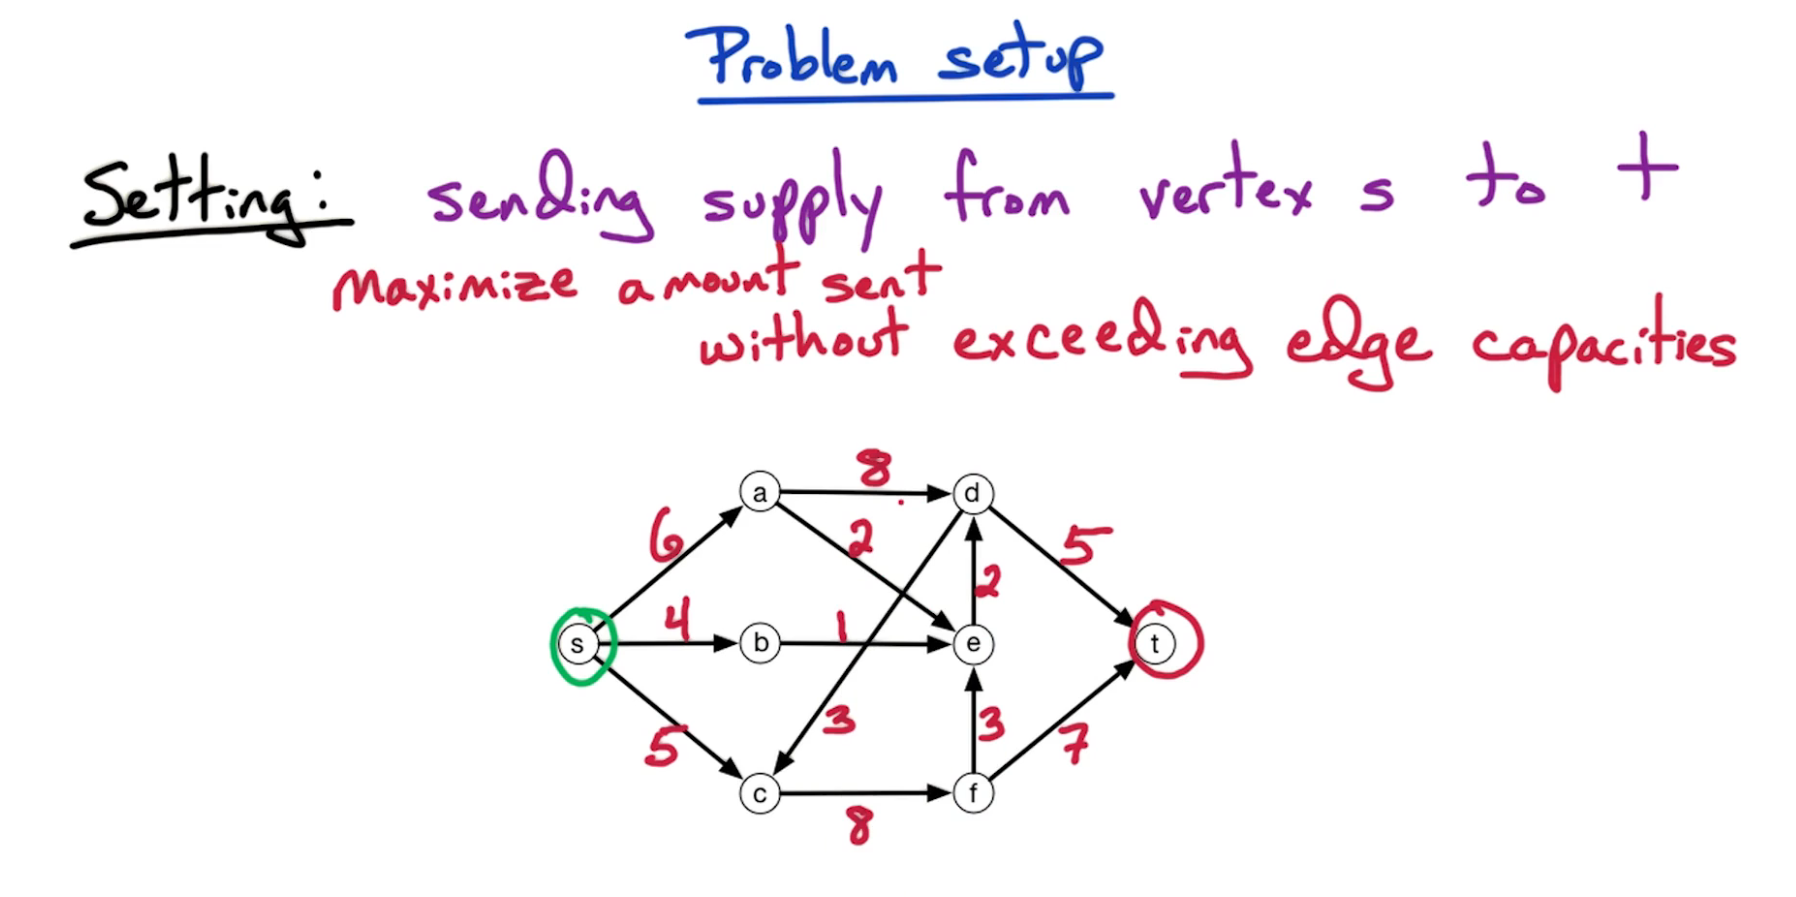 Problem setup
Setting: sending supply from vertex s to t
Maximize amount sent
without exceeding edge capacities
8
a d
6 2 5
2
4 1
s b e t
3 3
5 7
c f
8